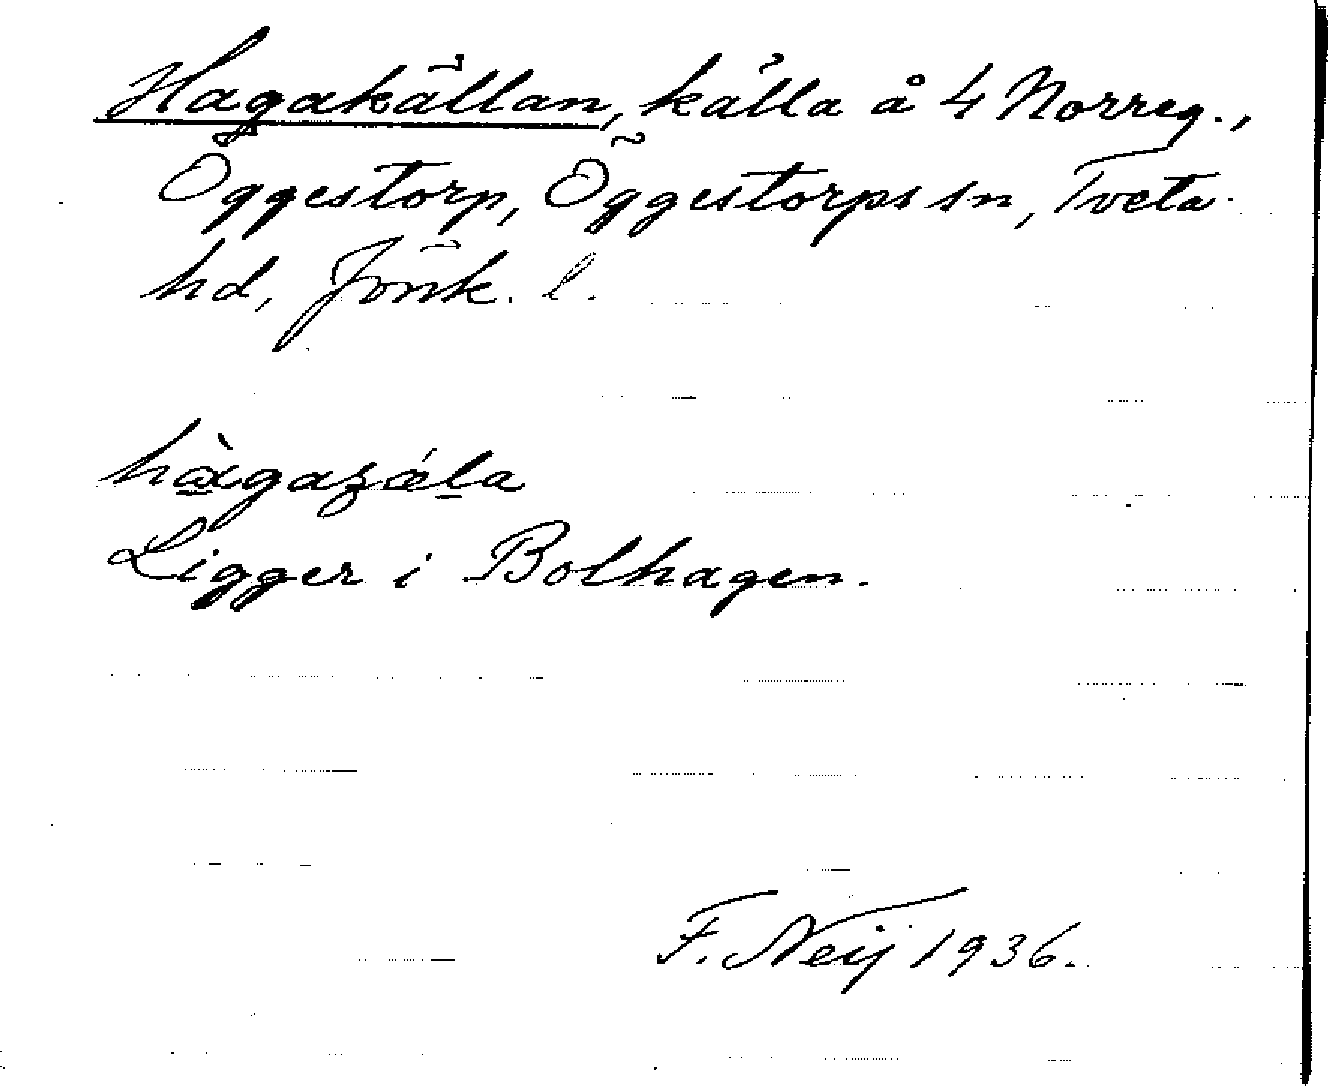 Hagakällan, källa å 4 Norreg.,
Öggestorp, Öggestorps sn, Tveta
hd, Jönk. l.
hàgaʒǽla
Ligger i Bolhagen.
F. Neij 1936.